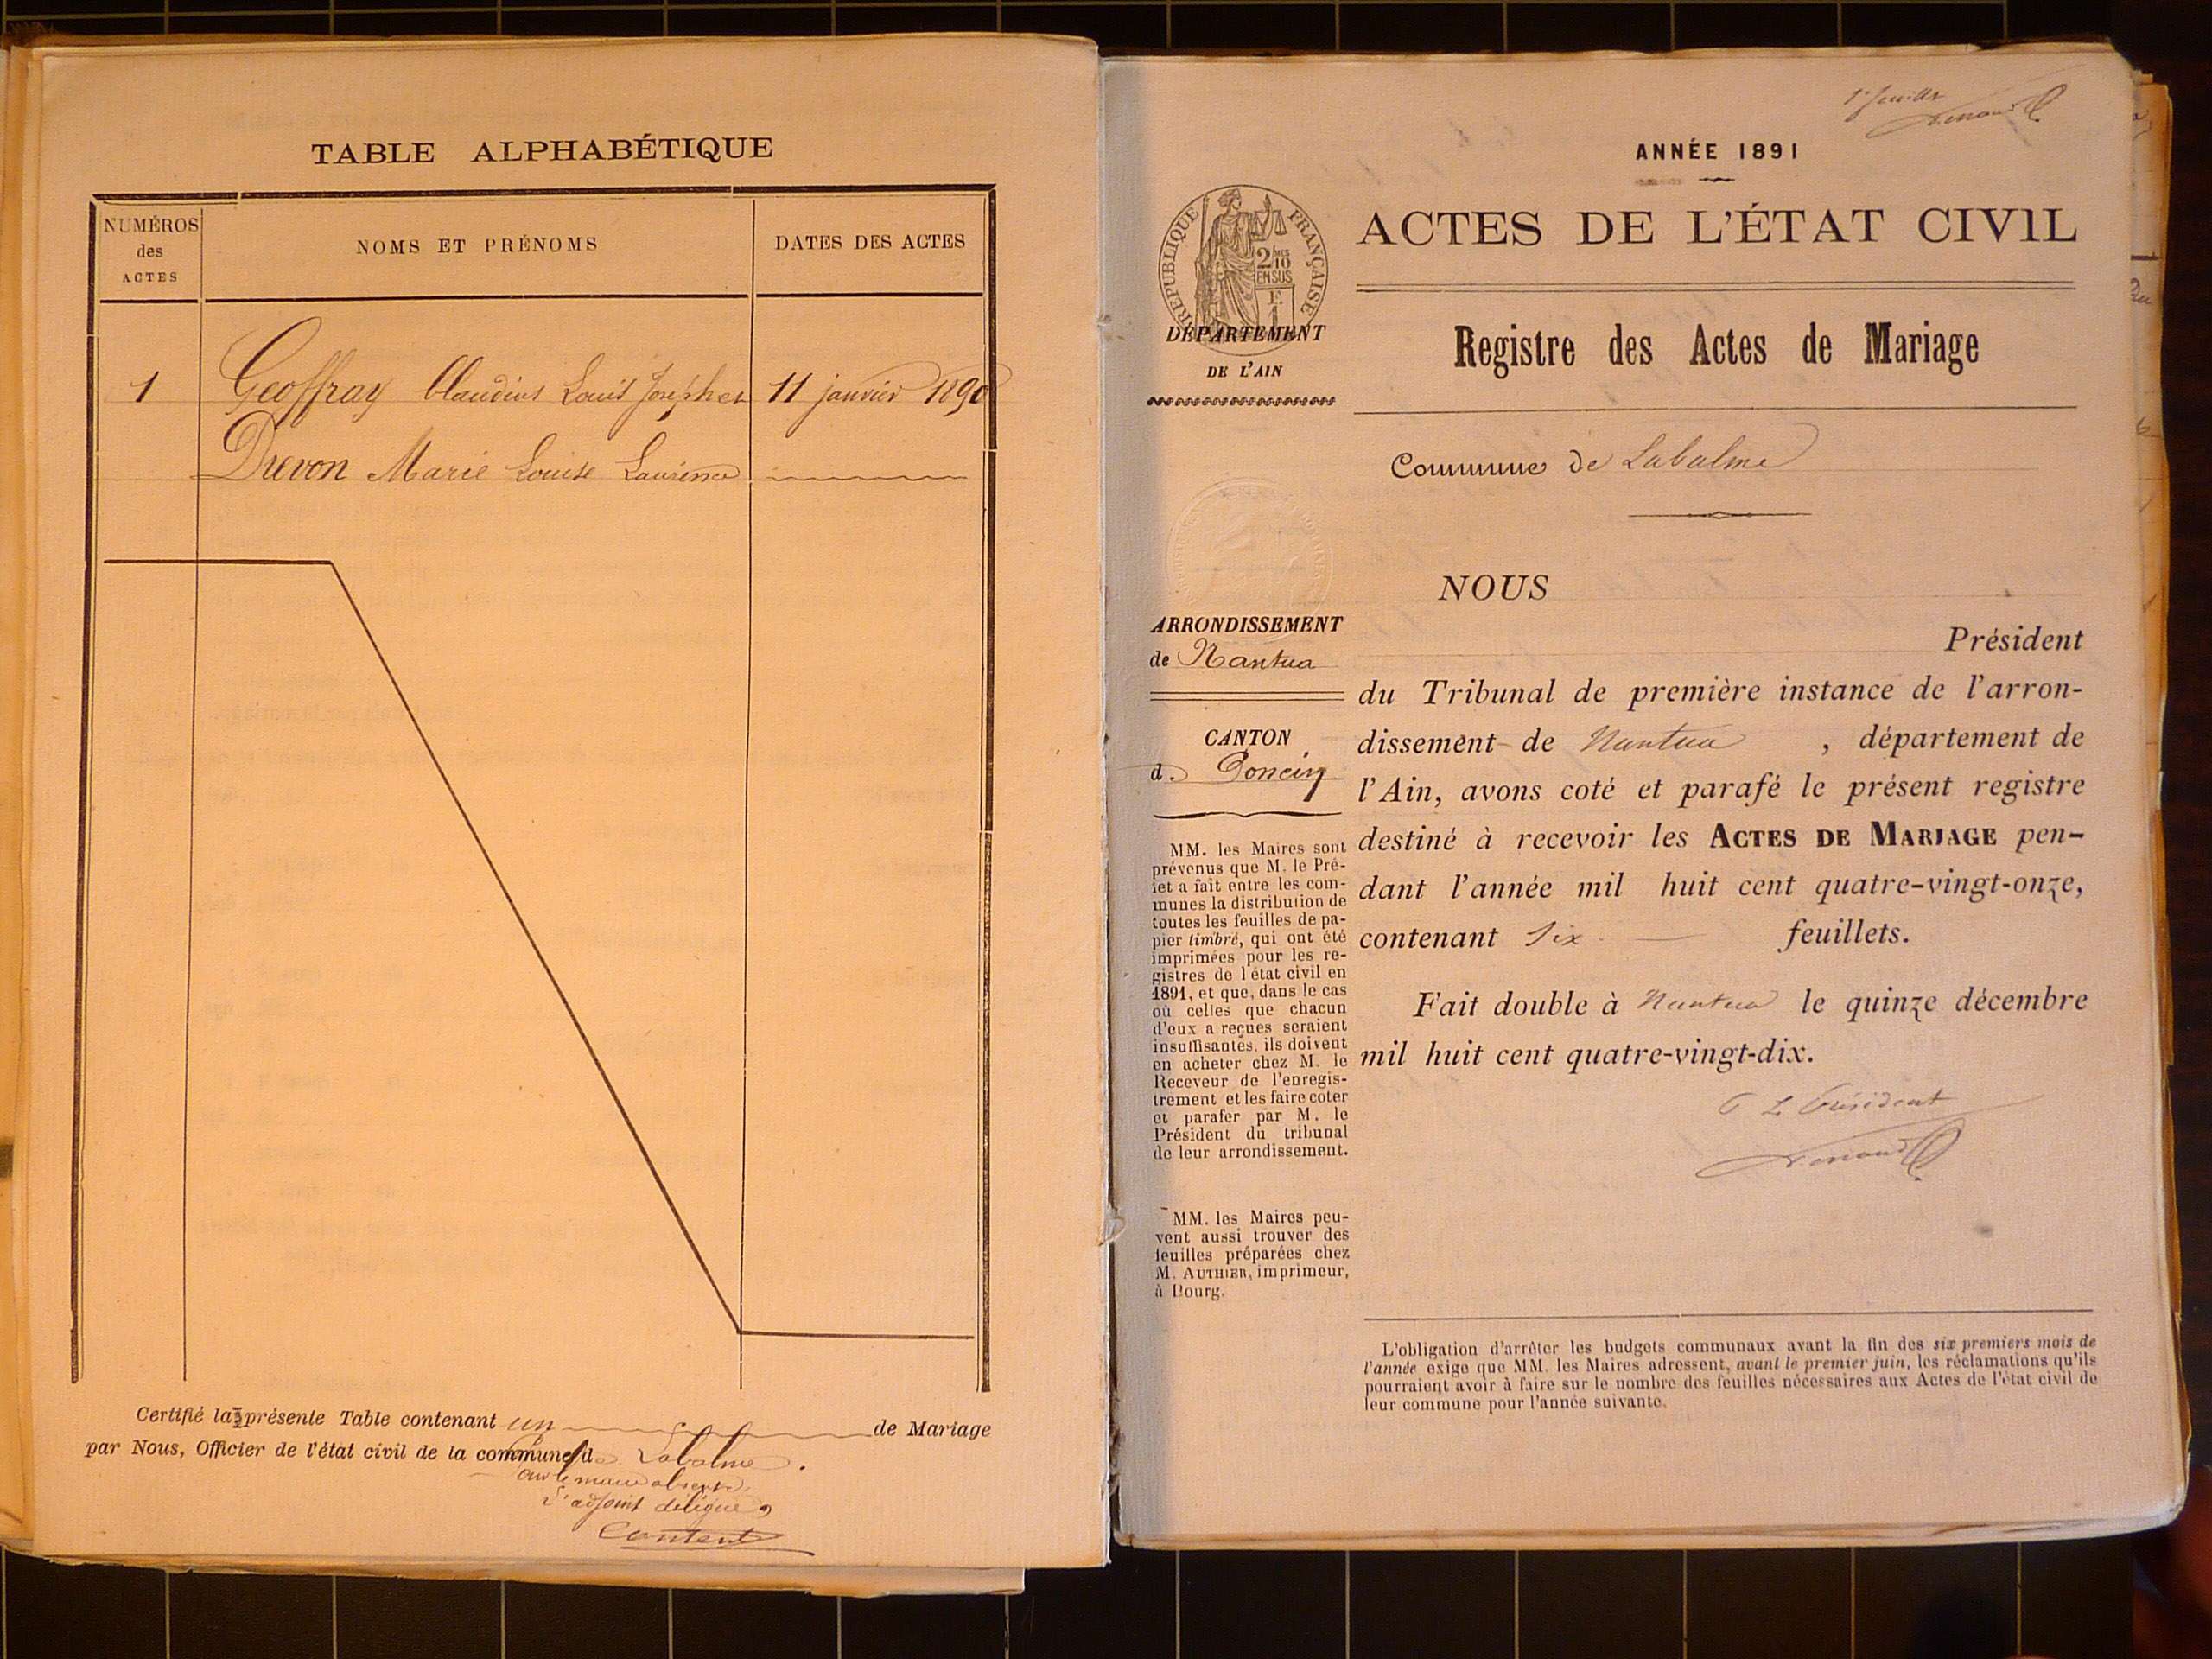 TABLE ALPHABÉTIQUE
NUMÉROS
des
ACTES
NOMS ET PRÉNOMS
DATES DES ACTES
1 Geoffray Claudius Louis Joseph et 11 janvier 1890
Drevon Marie Louise Laurence
Certifié la présente Table contenant un de Mariage
par Nous, Officier de l'état civil de la commune d. Labalme.
Pour le maire absent,
L'adjoint délégué,
Content
1er feuillet
ANNÉE 1891
RÉPUBLIQUE FRANÇAISE
2/10
EN SUS
F.
1
ACTES DE L'ÉTAT CIVIL
DÉPARTEMENT
DE L'AIN
Registre des Actes de Mariage
Commune de Labalme
NOUS
ARRONDISSEMENT
de Nantua
CANTON
d. Poncin
MM. les Maires sont
prévenus que M. le Pré-
fet a fait entre les com-
munes la distribution de
toutes les feuilles de pa-
pier timbré, qui ont été
imprimées pour les re-
gistres de l'état civil en
1891, et que, dans le cas
où celles que chacun
d'eux a reçues seraient
insuffisantes, ils doivent
en acheter chez M. le
Receveur de l'enregis-
trement et les faire coter
et parafer par M. le
Président du tribunal
de leur arrondissement.
MM. les Maires peu-
vent aussi trouver des
feuilles préparées chez
M. AUTHIER, imprimeur,
à Bourg.
Président
du Tribunal de première instance de l'arron-
dissement de Nantua , département de
l'Ain, avons coté et parafé le présent registre
destiné à recevoir les ACTES DE MARIAGE pen-
dant l'année mil huit cent quatre-vingt-onze,
contenant Six feuillets.
Fait double à Nantua le quinze décembre
mil huit cent quatre-vingt-dix.
P Le Président
L'obligation d'arrêter les budgets communaux avant la fin des six premiers mois de
l'année exige que MM. les Maires adressent, avant le premier juin, les réclamations qu'ils
pourraient avoir à faire sur le nombre des feuilles nécessaires aux Actes de l'état civil de
leur commune pour l'année suivante.